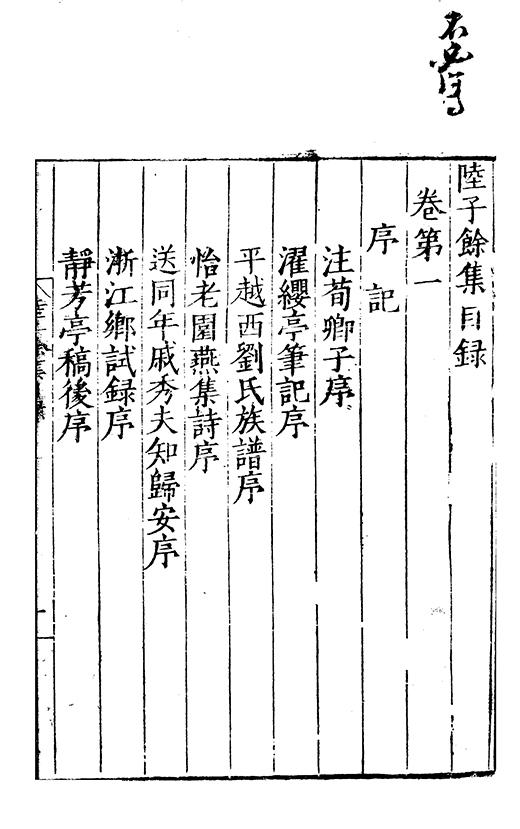 陸子餘集目録
卷第一
序記
注荀卿子序
濯纓亭筆記序
平越西劉氏族譜序
怡老園燕集詩序
送同年戚秀夫知歸安序
浙江鄉試録序
靜芳亭稿後序